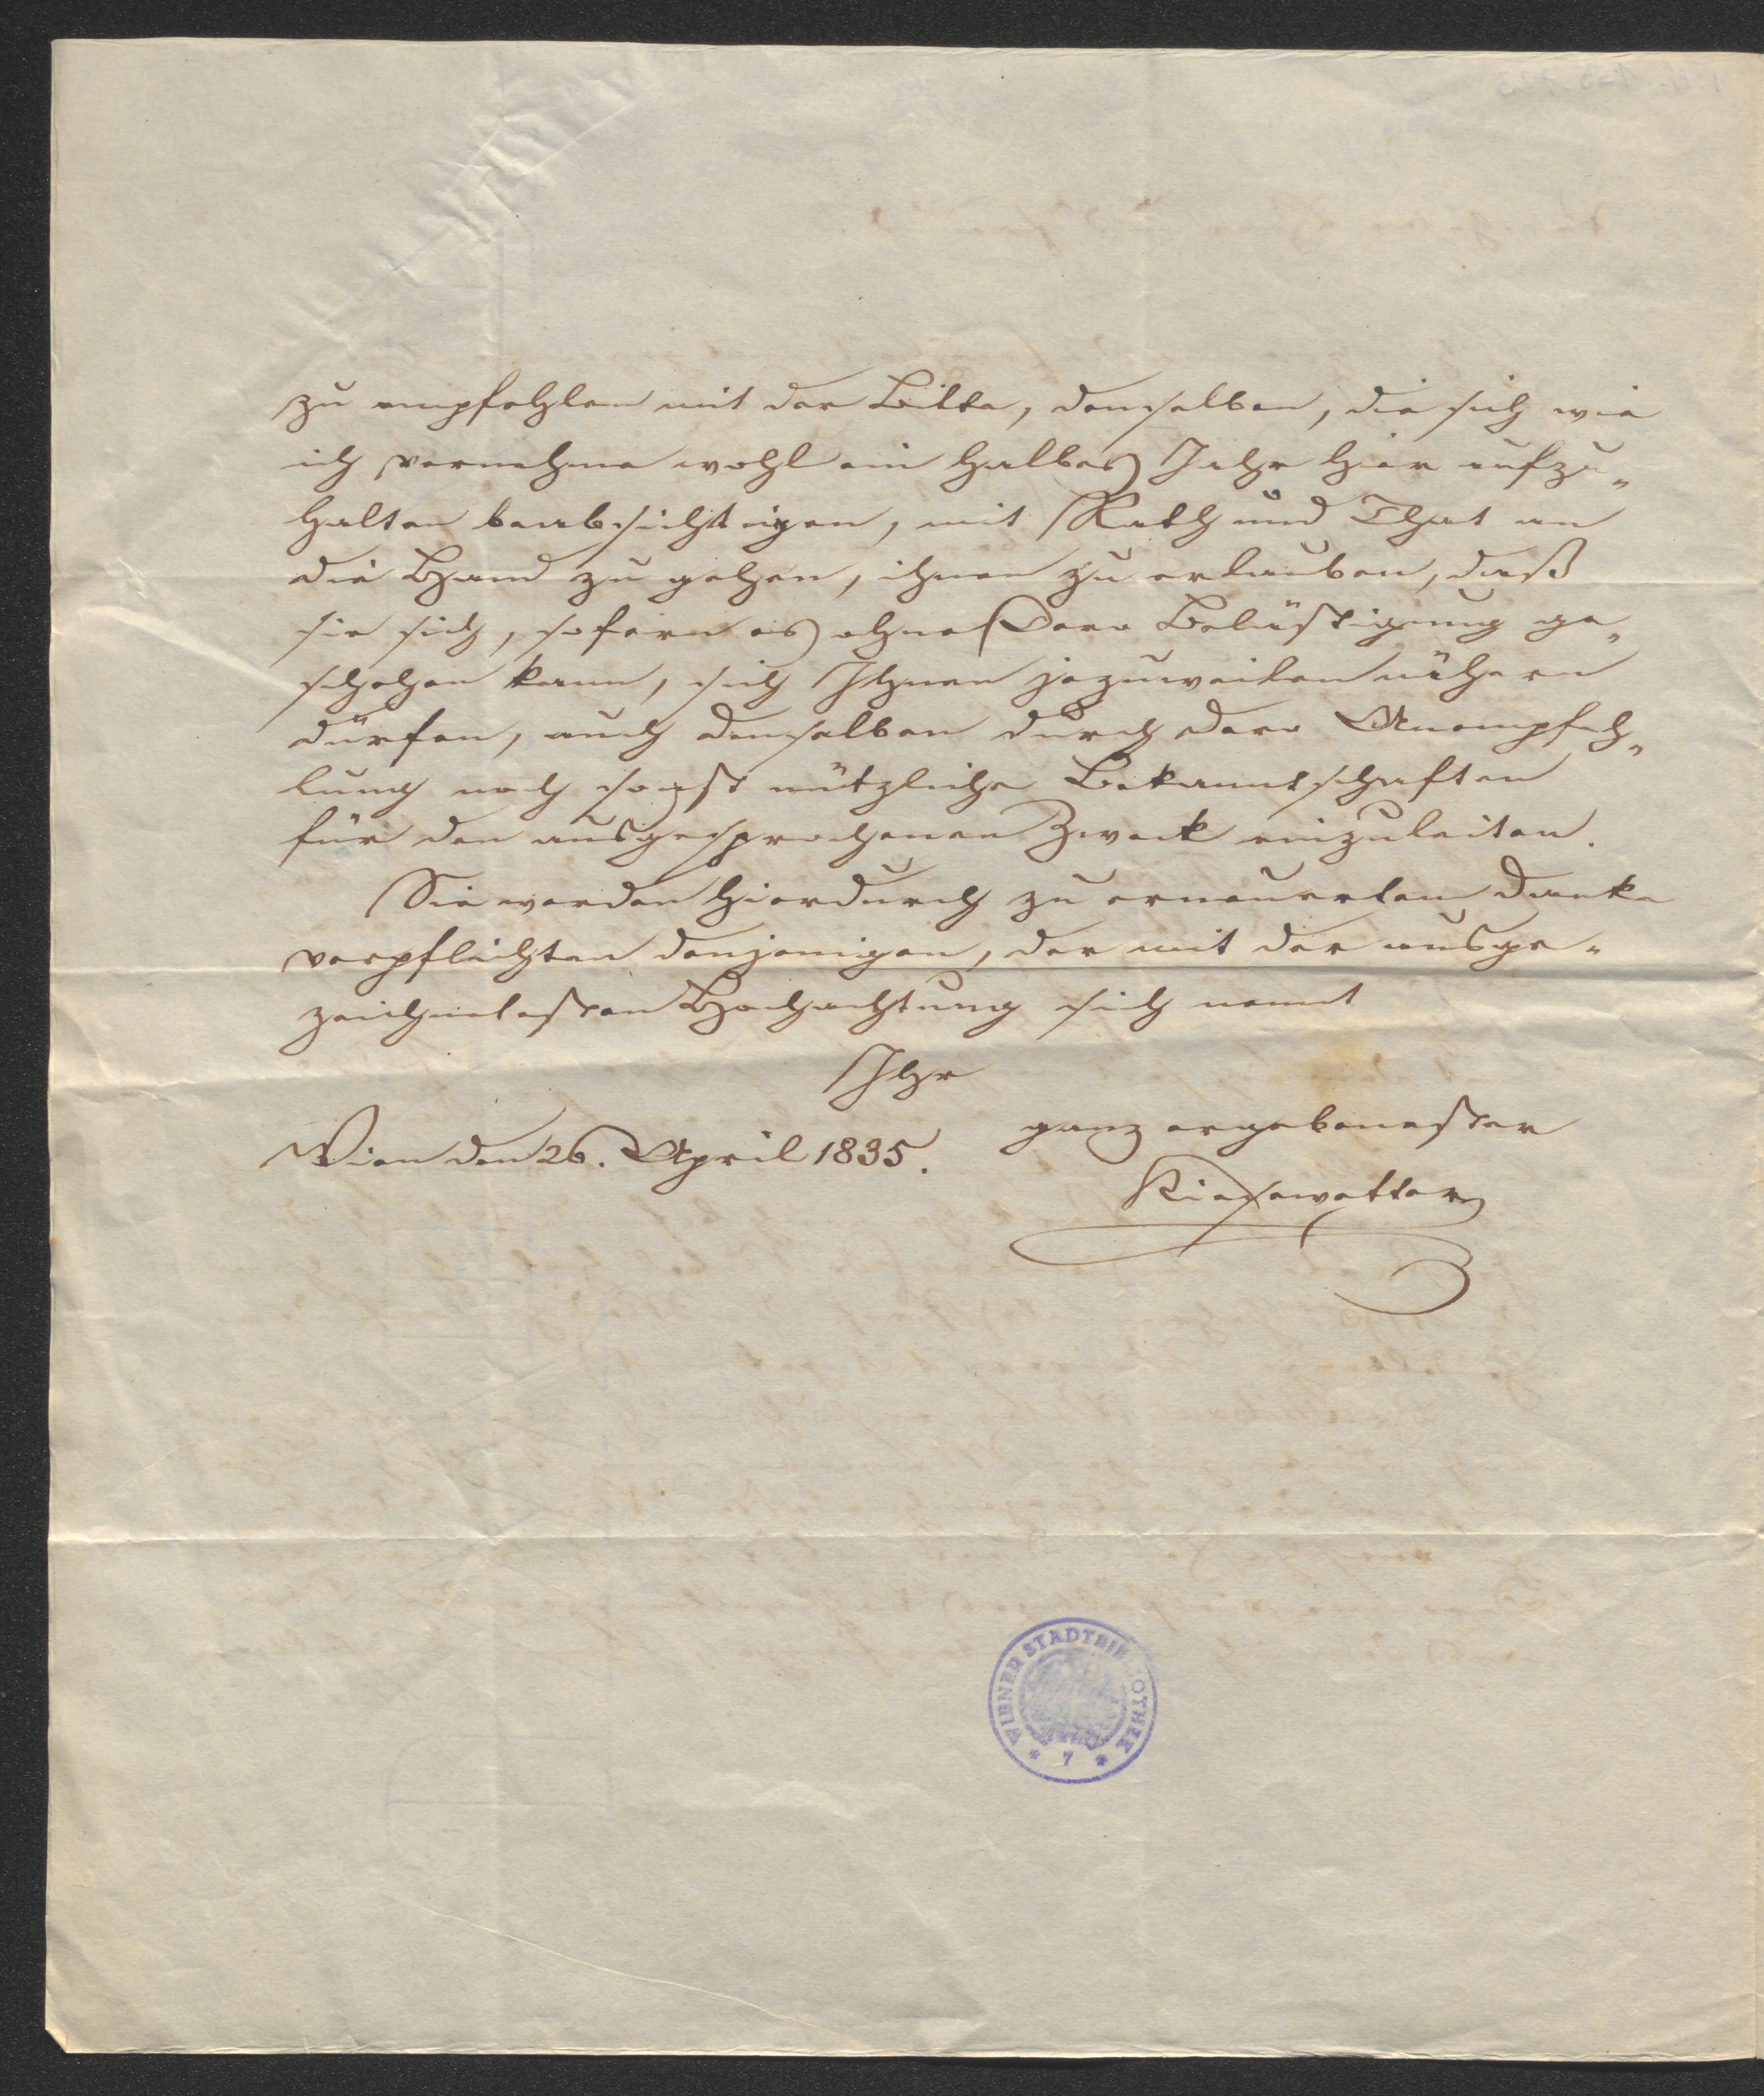 zu empfehlen mit der Bitte, denselben, die sich wie
ich vernehme wohl ein halbes Jahr hier aufzu„
halten beabsichtigen, mit Rath und That an
die Hand zu gehen, ihnen zu erlauben, daß
sie sich, sofern es ohne Dero Belästigung ge„
schehen kann, sich Ihnen jezuweilen nähern
dürfen, auch denselben durch dero Anempfeh„
lung noch sonst nützliche Bekanntschaften
für den ausgesprochenen Zweck einzuleiten.
Sie werden hierdurch zu erneuertem Danke
verpflichten denjenigen, der mit der ausge„
zeichnetesten Hochachtung sich nennt
Ihr
ganz ergebenester
Wien den 26. April 1835.
Kiesewetter
WIENER STADTBIBLIOTHEK
* 7 *